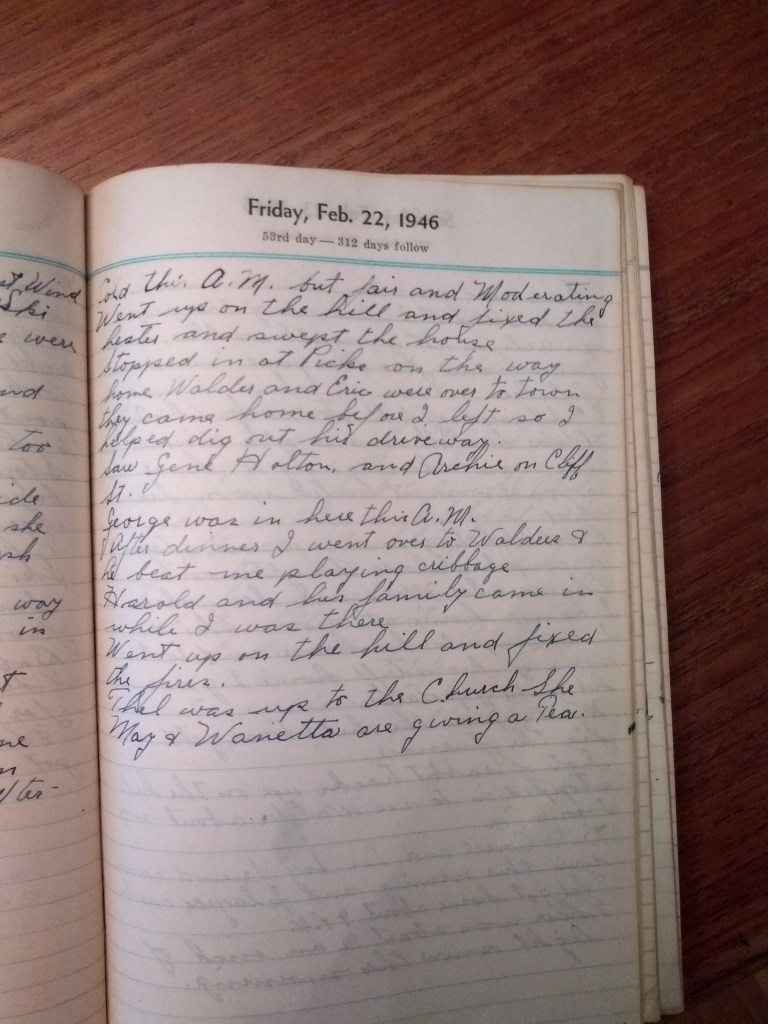 Friday, Feb. 22, 1946
53rd day — 312 days follow
Cold this A.M. but fair and Moderating
Went up on the hill and fixed the
heater and swept the house
Stopped in at Picks on the way
home Walder and Eric were over to town
they came home before I left so I
helped dig out his driveway.
Saw Gene Holton, and Archie on Cliff
St.
George was in here this A.M.
After dinner I went over to Walders &
he beat me playing cribbage
Harold and his family came in
while I was there
Went up on the hill and fixed
the fires.
Thel was up to the Church She
May & Wanetta are giving a Tea.
st Wind
Ski
were
nd
too
ide
she
sh
way
in